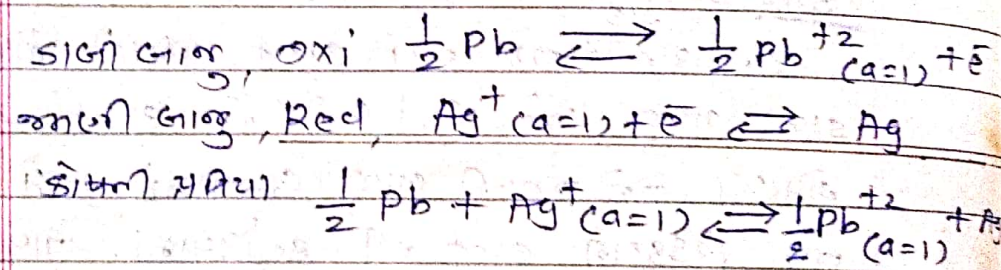 ડાબી બાજુ, oxi ½ Pb ⇌ ½ Pb⁺²(a=1) + ē
જમણી બાજુ, Red, Ag⁺(a=1) + ē ⇌ Ag
કોષની પ્રક્રિયા ½ Pb + Ag⁺(a=1) ⇌ ½ Pb⁺²(a=1) +